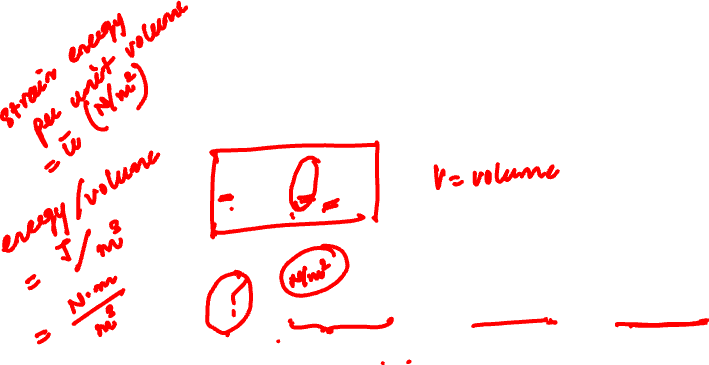 strain energy
per unit volume
= ū (N/m²)
energy/volume
= J/m³
= N·m/m³
V = volume
?
N/m²